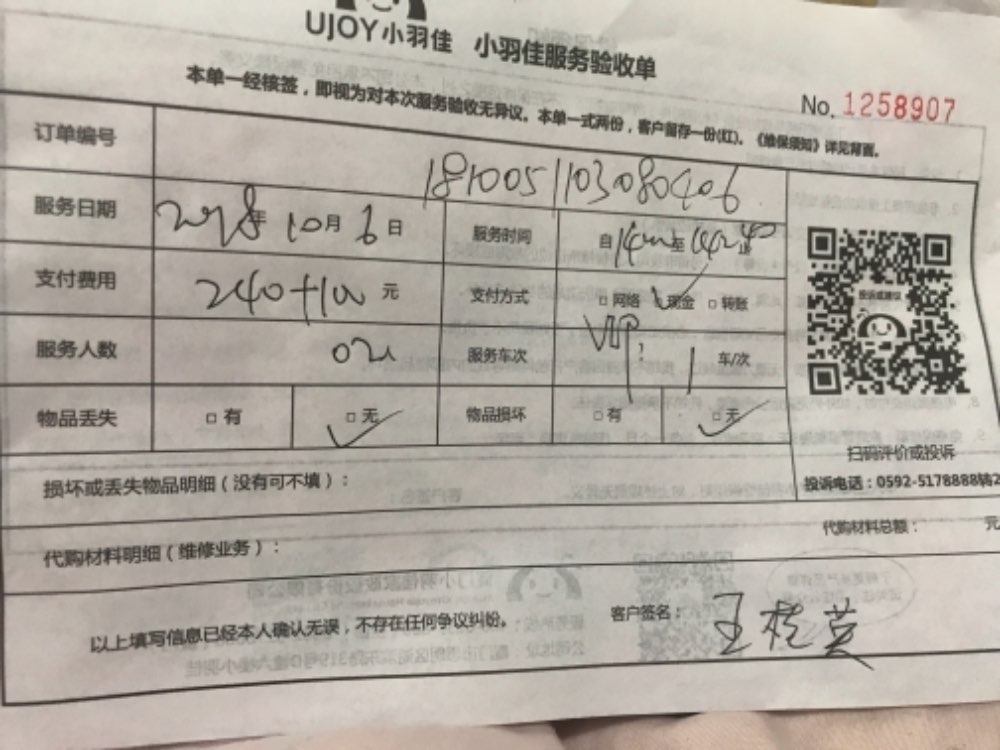 UJOY小羽佳 小羽佳服务验收单
No. 1258907
本单一经核签，即视为对本次服务验收无异议。本单一式两份，客户留存一份(红)。《维保须知》详见背面。
订单编号 1810051103080406
服务日期 2018年10月6日 服务时间 自 至 止
支付费用 240+100元 支付方式 □网络 □现金 □转账
服务人数 02人 服务车次 VIP: 1 车/次
物品丢失 □有 □无 物品损坏 □有 □无
投诉或建议
扫码评价或投诉
投诉电话：0592-5178888转2
损坏或丢失物品明细（没有可不填）：
代购材料明细（维修业务）： 代购材料总额： 元
以上填写信息已经本人确认无误，不存在任何争议纠纷。 客户签名： 王桂英